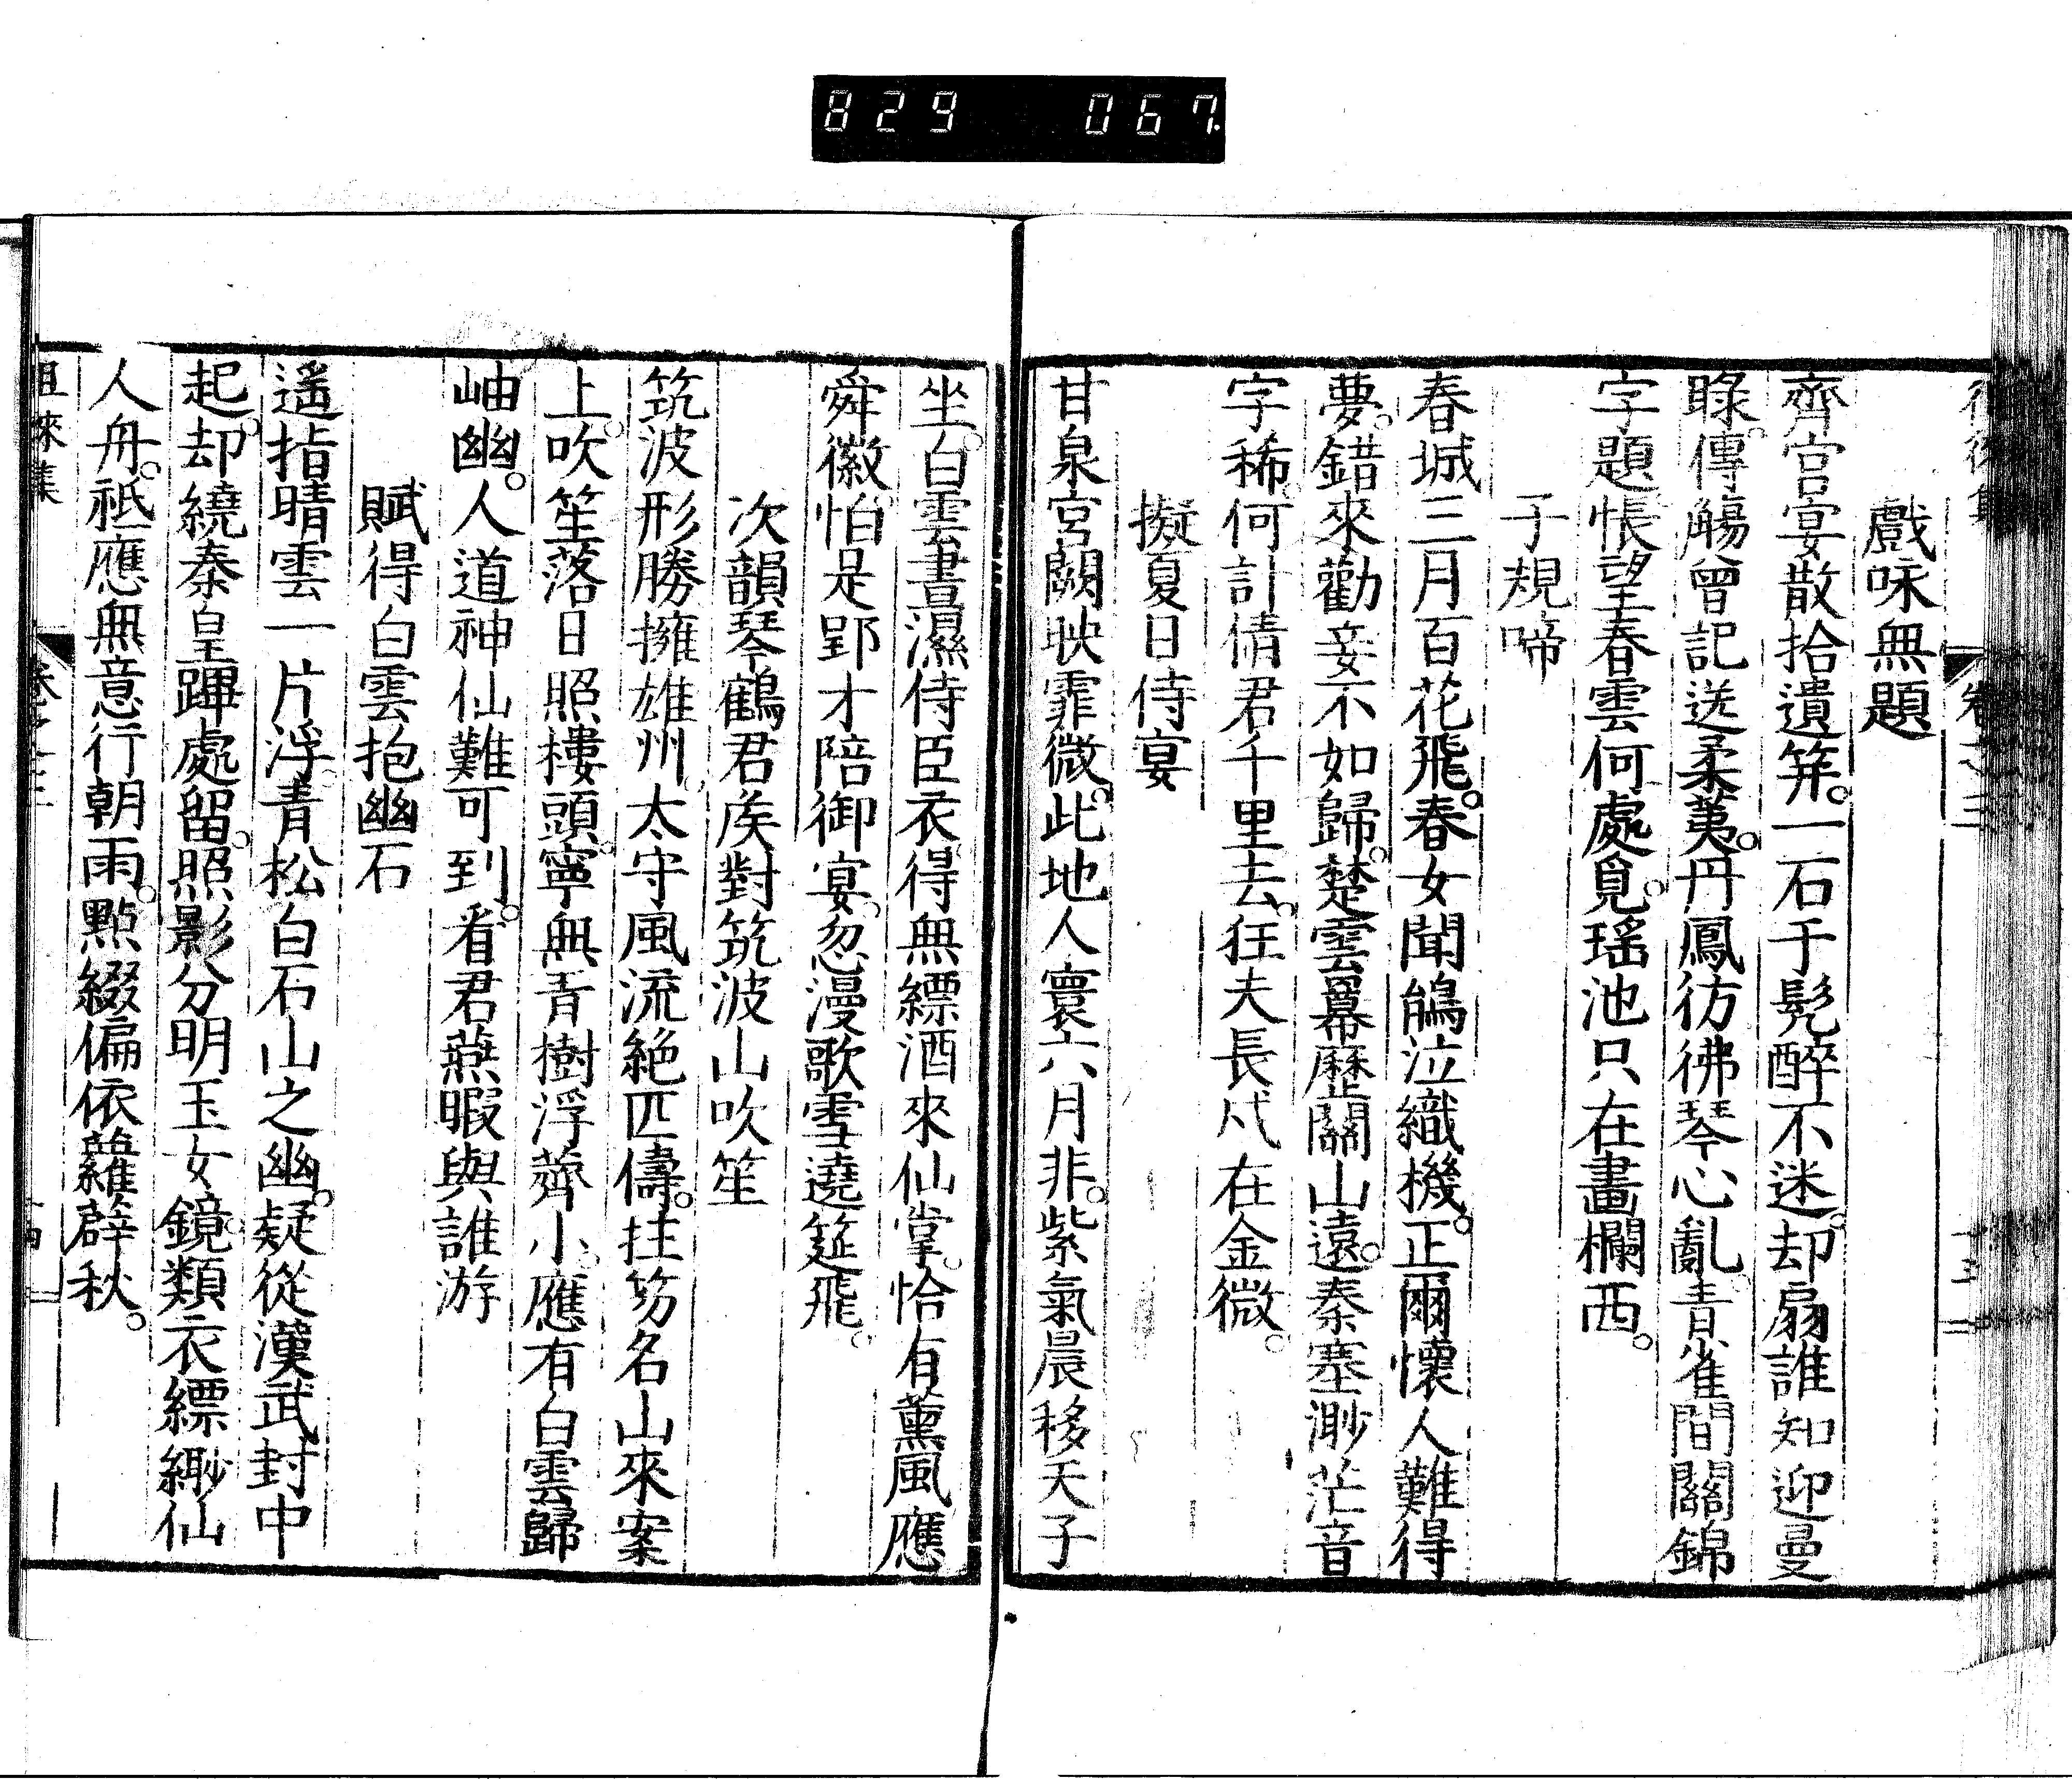 829 067
戲咏無題
齊宫宴散拾遺筓。一石于髡醉不迷。却扇誰知迎曼
睩。傳觴曾記送柔荑。丹鳳彷彿琴心亂。青雀間關錦
字題。悵望春雲何處覓。瑤池只在畫欄西。
子規啼
春城三月百花飛。春女聞鵃泣織機。正爾懷人難得
夢。錯來勸妾不如歸。楚雲冪歷關山遠。秦塞渺茫音
字稀。何計倩君千里去。狂夫長戍在金微。
擬夏日侍宴
甘泉宮闕映霏微。此地人寰六月非。紫氣晨移天子
坐。白雲晝濕侍臣衣。得無縹酒來仙掌。恰有薰風應
舜徽。怕是郢才陪御宴。忽漫歌雪遶筵飛。
次韻琴鶴君矦對筑波山吹笙
筑波形勝擁雄州。太守風流絶匹儔。拄笏名山來案
上。吹笙落日照樓頭。寧無青樹浮薺小。應有白雲歸
岫幽。人道神仙難可到。看君燕暇與誰游
賦得白雲抱幽石
遙指晴雲一片浮。青松白石山之幽。疑從漢武封中
起。却繞秦皇蹕處留。照影分明玉女鏡。類衣縹緲仙
人舟。祗應無意行朝雨。點綴偏依蘿薜秋。
徂徠集 卷之三